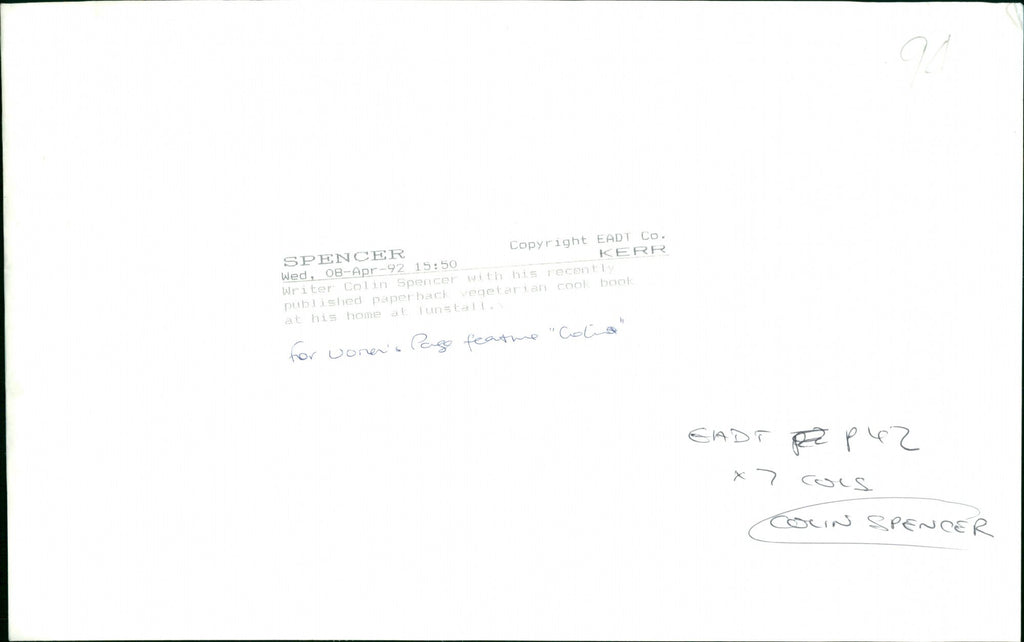 SPENCER Copyright EADT Co.
Wed, 08-Apr-92 15:50 KERR
Writer Colin Spencer with his recently
published paperback vegetarian cook book
at his home at Tunstall.
for Women's Page feature
EADT P42
x 7 COLS
COLIN SPENCER